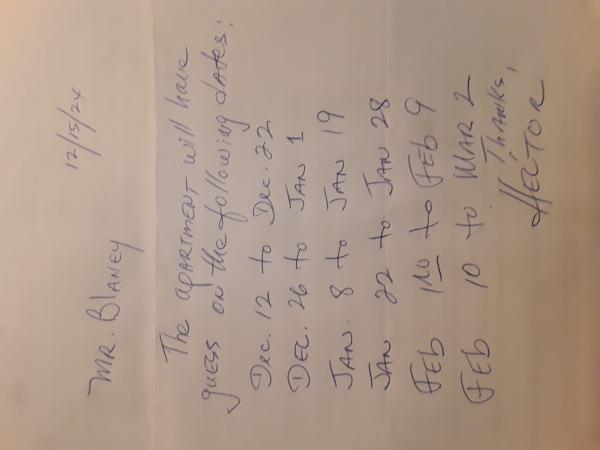 12/15/24
MR. BLANEY
The apartment will have
guess on the following dates:
Dec. 12 to Dec. 22
DEC. 26 to JAN 1
JAN. 8 to JAN 19
JAN 22 to JAN 28
FEB 1ro to FEB 9
FEB 10 to MAR 2
Thanks,
HECTOR